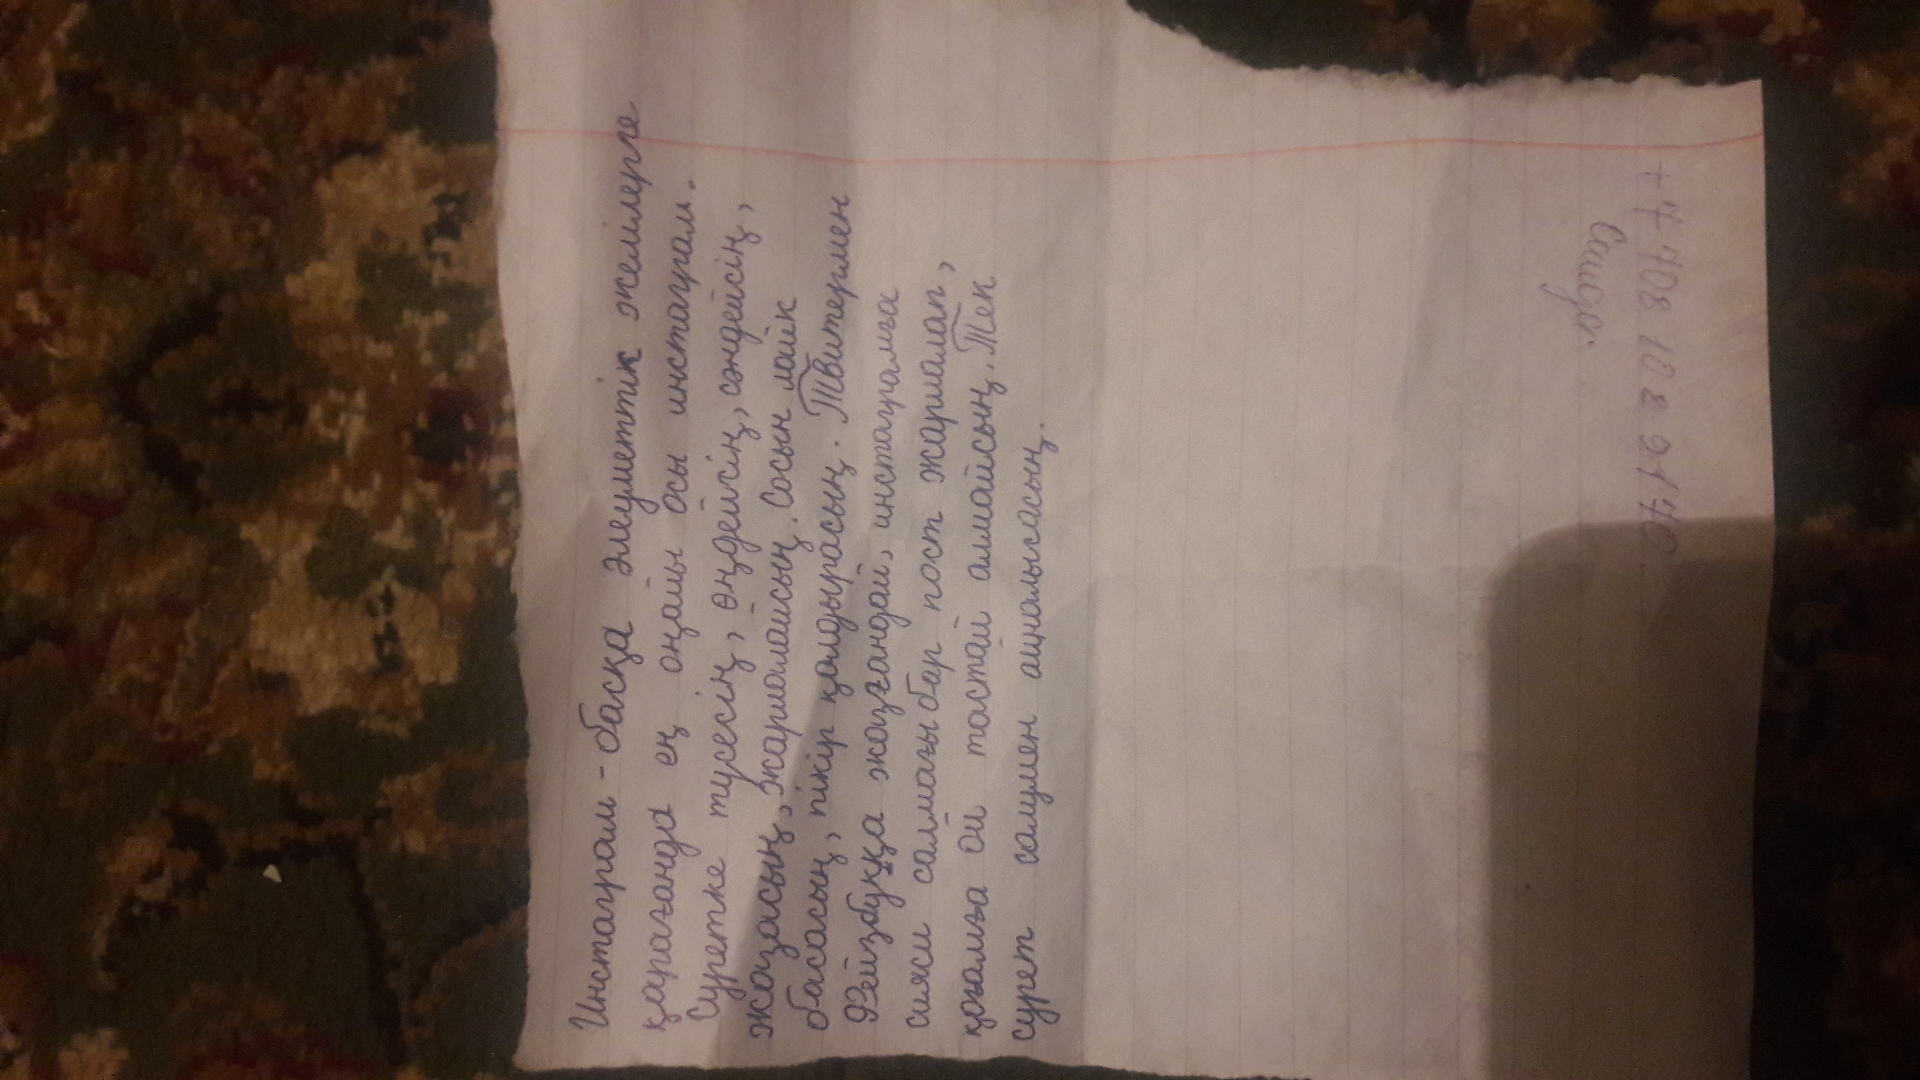 Инстаграм - басқа әлеуметтік желілерге
қарағанда ең оңайы осы инстаграм.
Суретке түсесің, өңдейсің, сәндейсің,
жазасың, жариялайсың. Сосын лайк
басасың, пікір қалдырасың. Твитермен
Фейзбукқа жазғандай, инстаграмға
саяси салмағы бар пост жариялап,
қоғамға ой тастай алмайсың. Тек
сурет салумен айналысасың.
+7 708 10 2 21 70